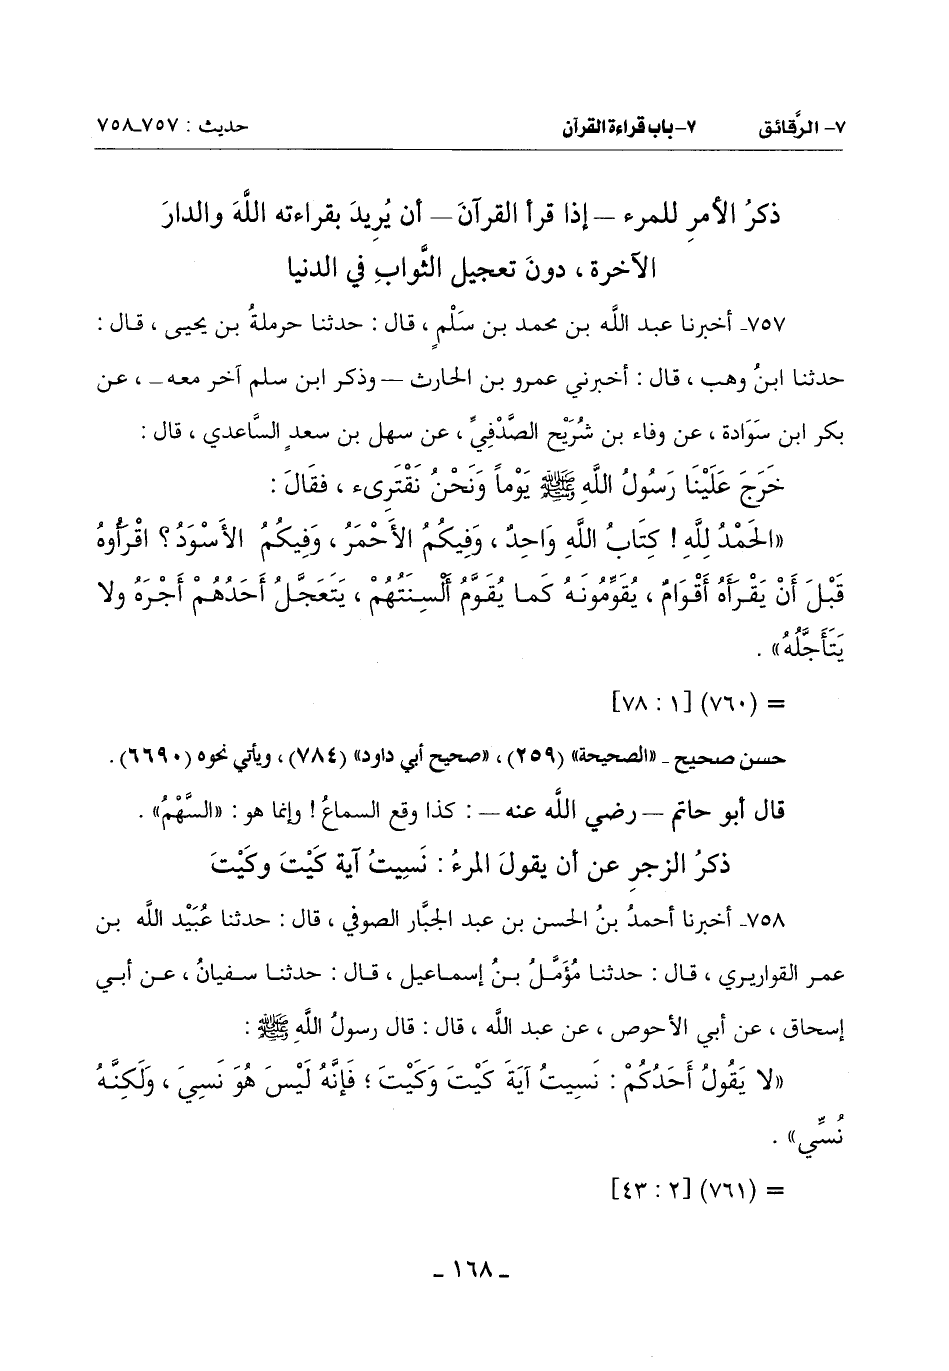 ٧- الرَّقائق ٧-باب قراءة القرآن حديث : ٧٥٧-٧٥٨
ذكرُ الأمرِ للمرء — إذا قرأ القرآنَ — أن يُريدَ بقراءتِه اللَّهَ والدارَ
الآخرة ، دونَ تعجيل الثَّوابِ في الدنيا
٧٥٧- أخبرنا عبد اللَّه بن محمد بن سَلْمٍ ، قال : حدثنا حرملةُ بن يحيى ، قال :
حدثنا ابنُ وهب ، قال : أخبرني عمرو بن الحارث — وذكر ابن سلم آخر معه — ، عن
بكر ابن سَوَادة ، عن وفاء بن شُرَيْح الصَّدْفِيِّ ، عن سهل بن سعدٍ السَّاعدي ، قال :
خَرَجَ عَلَيْنَا رَسُولُ اللَّهِ ﷺ يَوْماً وَنَحْنُ نَقْتَرِىء ، فقَالَ :
«الحَمْدُ لِلَّهِ ! كِتَابُ اللَّهِ وَاحِدٌ ، وَفِيكُمُ الأَحْمَرُ ، وَفِيكُمُ الأَسْوَدُ ؟ اقْرَأُوهُ
قَبْلَ أَنْ يَقْرَأَهُ أَقْوَامٌ ، يُقَوِّمُونَهُ كَمَا يُقَوَّمُ أَلْسِنَتُهُمْ ، يَتَعَجَّلُ أَحَدُهُمْ أَجْرَهُ ولا
يَتَأَجَّلُهُ» .
= (٧٦٠) [١ : ٧٨]
حسن صحيح ـ «الصحيحة» (٢٥٩) ، «صحيح أبي داود» (٧٨٤) ، ويأتي نحوه (٦٦٩٠) .
قال أبو حاتم — رضي اللَّه عنه — : كذا وقع السماعُ ! وإنما هو : «السَّهْمُ» .
ذكرُ الزجرِ عن أن يقولَ المرءُ : نَسِيتُ آية كَيْتَ وكَيْتَ
٧٥٨- أخبرنا أحمدُ بنُ الحسن بن عبد الجبَّار الصوفي ، قال : حدثنا عُبَيْد اللَّه بن
عمر القواريري ، قال : حدثنا مُؤَمَّلُ بنُ إسماعيل ، قال : حدثنا سفيانُ ، عن أبي
إسحاق ، عن أبي الأحوص ، عن عبد اللَّه ، قال : قال رسولُ اللَّهِ ﷺ :
«لا يَقُولُ أَحَدُكُمْ : نَسِيتُ آيَةَ كَيْتَ وَكَيْتَ ؛ فَإِنَّهُ لَيْسَ هُوَ نَسِيَ ، وَلَكِنَّهُ
نُسِّي» .
= (٧٦١) [٢ : ٤٣]
ـ ١٦٨ ـ